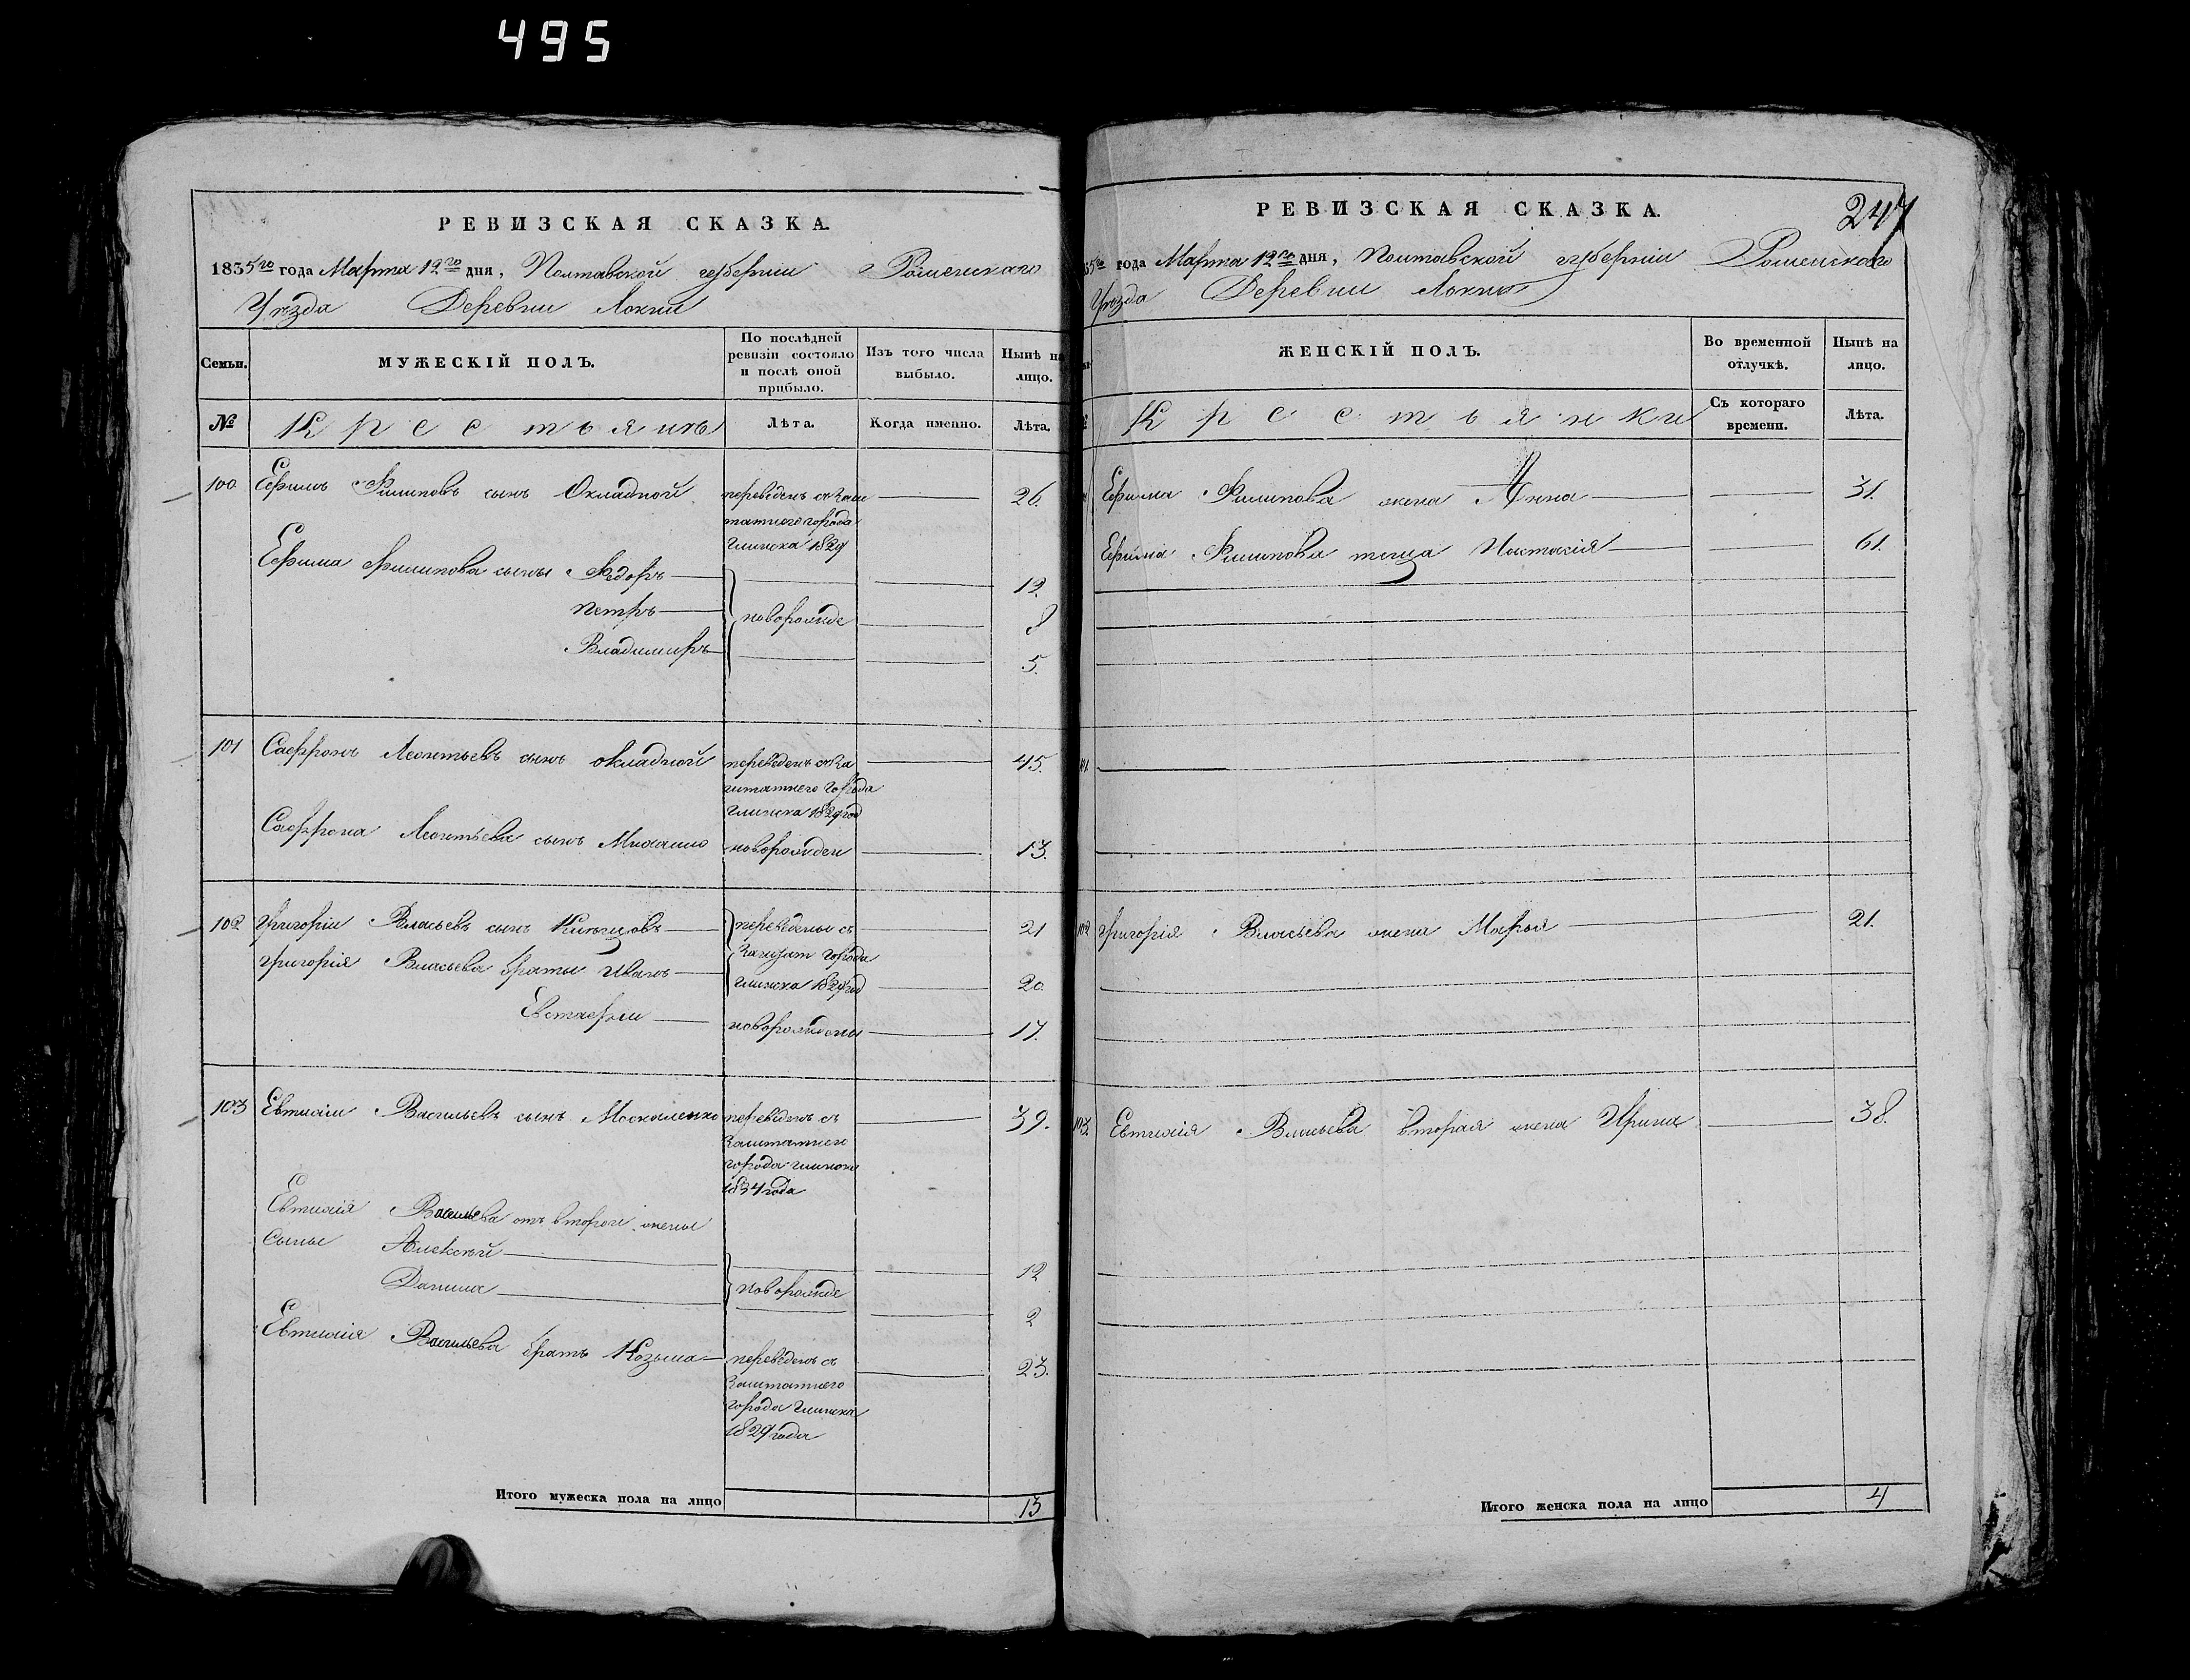 495
РЕВИЗСКАЯ СКАЗКА.
1835го года Марта 12го дня, Полтавской губернии Роменскаго
Уезда Деревни Локни
Семьи. МУЖЕСКІЙ ПОЛЪ. По послѣдней ревизіи состояло и послѣ оной прибыло. Изъ того числа выбыло. Нынѣ на лицо.
№ Крестьянъ Лѣта. Когда именно. Лѣта.
100 Ефимъ Филиповъ сынъ Окладной переведенъ съ Заш 26.
татнего города
Глинска 1829
Ефима Филипова сыны Федоръ 12.
Петръ новорожде 8
Владимиръ 5.
101 Сафронъ Леонтьевъ сынъ Окладной переведенъ съ За 45.
штатнего города
Глинска 1829 год
Сафрона Леонтьева сынъ Михаило новорожден 13.
102 Григорiи Власьевъ сынъ переведены съ 21
Григорiя Власьева браты Иванъ Заштат города
Глинска 1829 год 20
Евстафiи новорождены 17.
103 Евтихiи Васильевъ сынъ Москаленко переведенъ съ 39.
Заштатнего
города Глинска
1834 года
Евтихiя Васильева отъ второй жены
Сыны Алексѣй 12
Данила новорожде 2
Евтихiя Васильева братъ Козьма переведенъ съ 23.
Заштатнего
города Глинска
1829 года
Итого мужеска пола на лицо 13
247
РЕВИЗСКАЯ СКАЗКА.
35го года Марта 12го дня, Полтавской губернiи Роменскаго
Уезда Деревни Локни
ЖЕНСКІЙ ПОЛЪ. Во временной отлучкѣ. Нынѣ на лицо.
Крестьянки Съ котораго времени. Лѣта.
Ефима Филипова жена Анна 31.
Ефима Филипова теща Настасiя 61.
101
102 Григорiя Власьева жена Марья 21.
103 Евтихiя Власьева вторая жена Ирина 38.
Итого женска пола на лицо 4